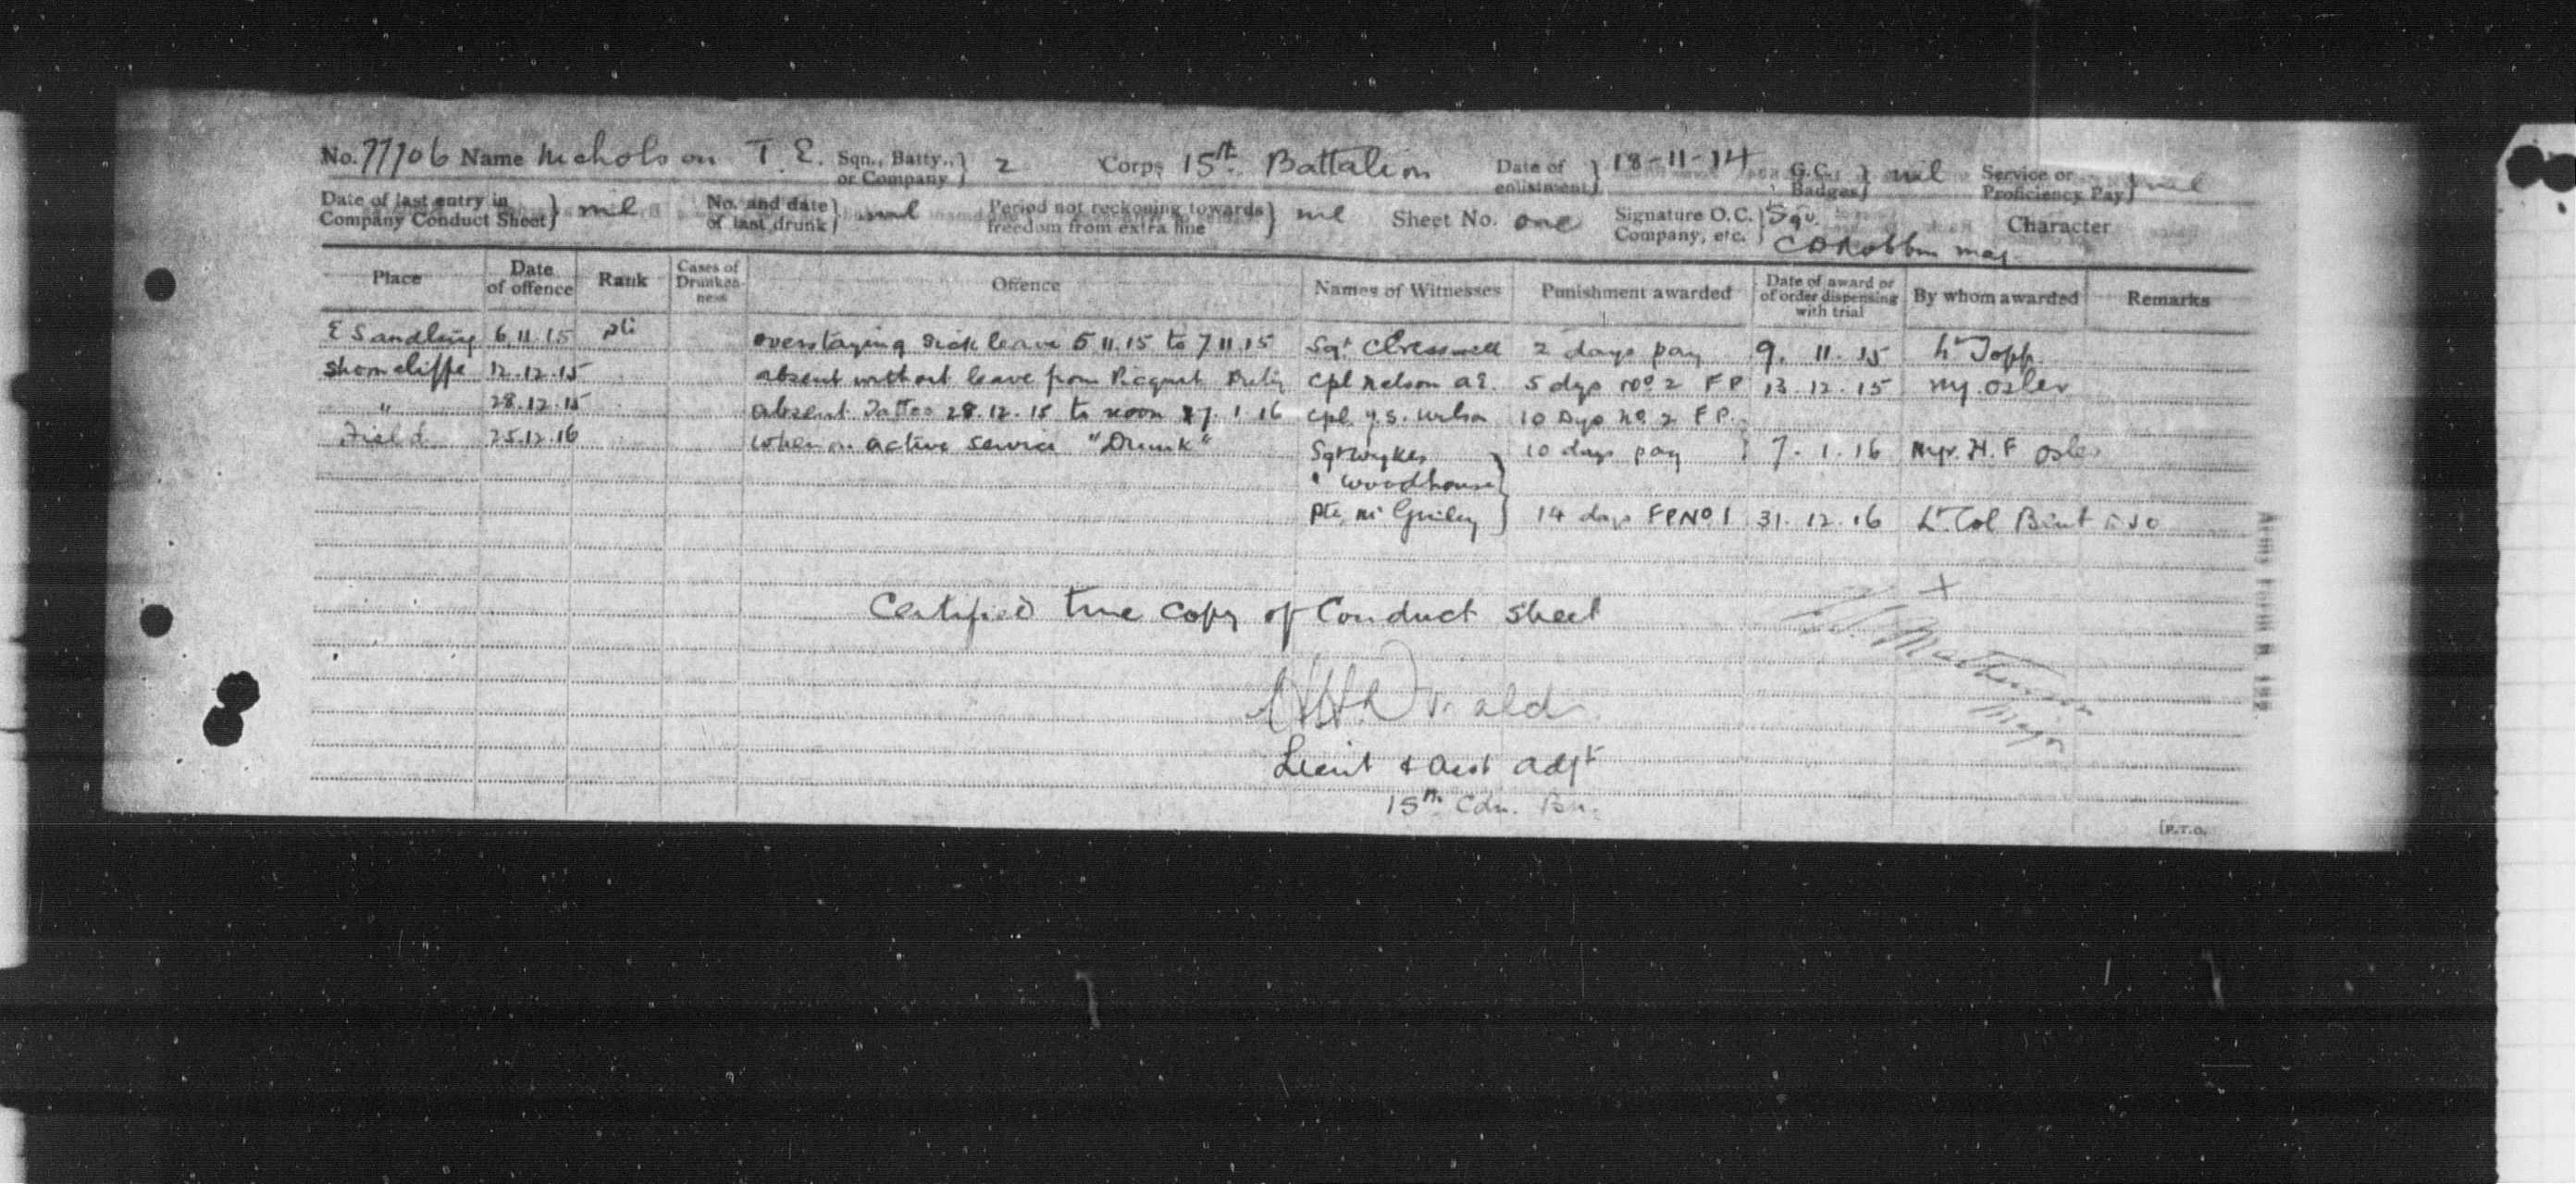 No. 77106 Name Nicholson T. E. Sqn., Batty., or Company } 2 Corps 15th Battalion Date of enlistment } 18-11-14 G.C. Badges } nil Service or Proficiency Pay } nil
Date of last entry in Company Conduct Sheet } nil No. and date of last drunk } nil Period not reckoning towards freedom from extra fine } nil Sheet No. one Signature O.C. Company, etc. } Sgd. Maj. Character
Place Date of offence Rank Cases of Drunkenness Offence Names of Witnesses Punishment awarded Date of award or of order dispensing with trial By whom awarded Remarks
E Sandling 6.11.15 pte overstaying sick leave 6 11.15 to 7 11.15 Sgt Cresswell 2 days pay 9. 11. 15 Lt Topp
Shorncliffe 12.12.15 absent without leave from Picquet Cpl Nelson 5 dys No 2 FP 13 12. 15 Mj. Osler
" 28.12.15 absent Tattoo 28.12.15 to noon 1 16 Cpl Wilson 10 Dys No 2 F P.
Field 25.12.16 when on active service "Drunk" Sgt Wykes 10 days pay 7. 1. 16 Mjr. H. F Osler
" Woodhouse
Pte 14 days FP No 1 31. 12. 16 Lt. Col Bent DSO
Certified true copy of Conduct sheet
Major
Lieut & Asst Adjt
15th Cdn. Bn.
Army Form B. 122.
[P.T.O.